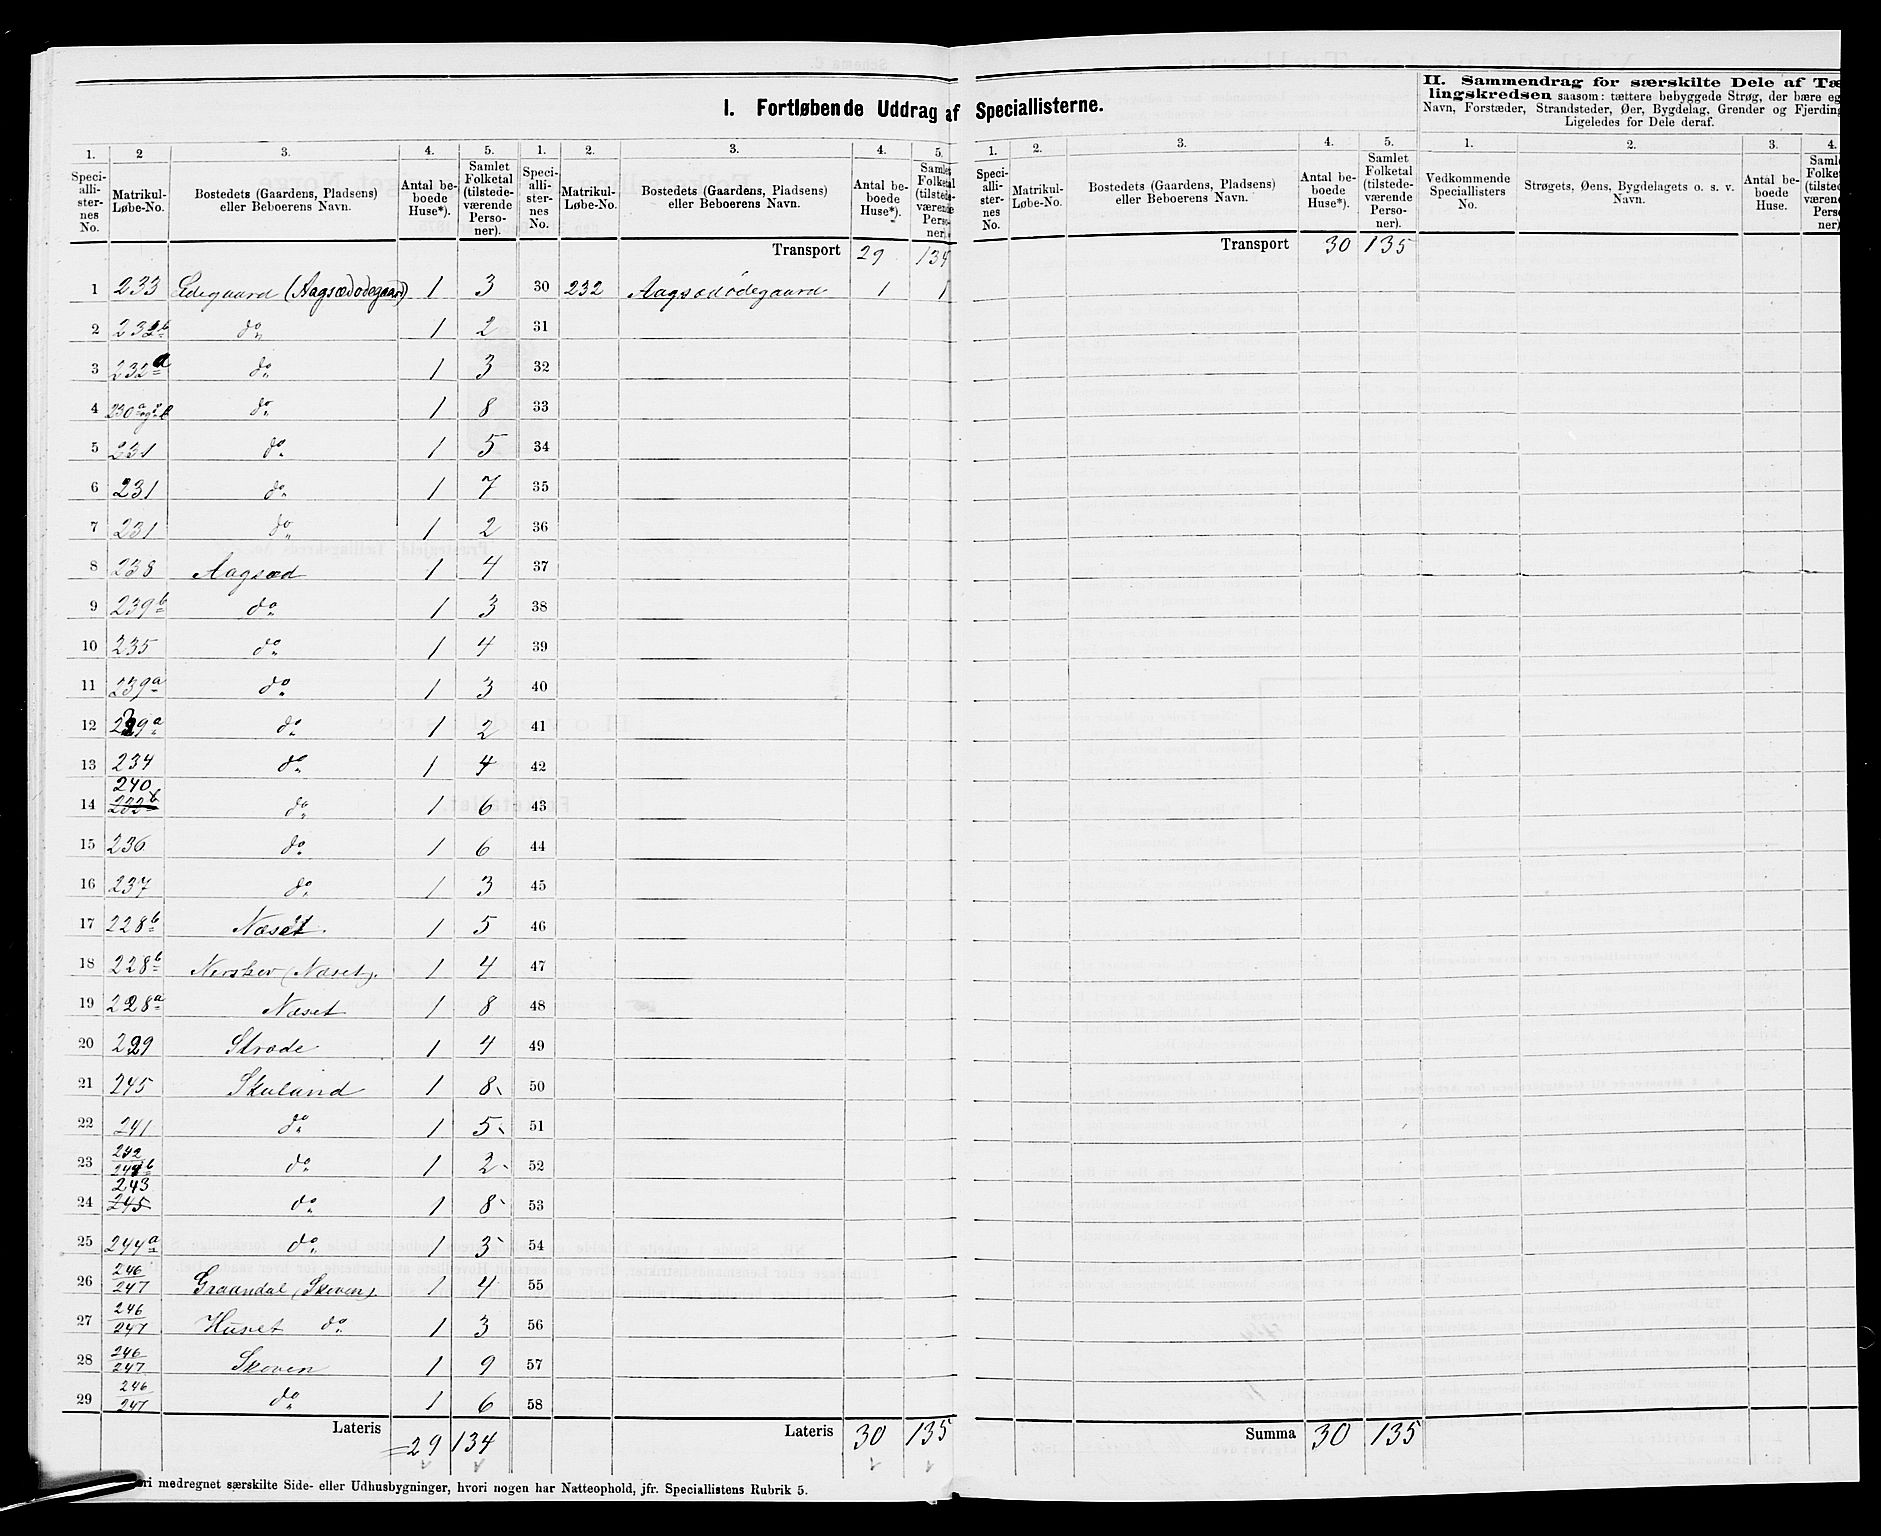 I. Fortløbende Uddrag af Speciallisterne.
II. Sammendrag for særskilte Dele af Tæ
lingskredsen saasom: tættere bebyggede Strøg, der bære eg
Navn, Forstæder, Strandsteder, Øer, Bygdelag, Grender og Fjerding
Ligeledes for Dele deraf.
1. 2 3. 4. 5. 1. 2. 3. 4. 5. 1. 2. 3. 4. 5. 1. 2. 3. 4.
Speciallisternes No. Matrikul-Løbe-No. Bostedets (Gaardens, Pladsens) eller Beboerens Navn. Antal beboede Huse*). Samlet Folketal (tilstedeværende Personer).
Speciallisternes No. Matrikul-Løbe-No. Bostedets (Gaardens, Pladsens) eller Beboerens Navn. Antal beboede Huse*). Samlet Folketal (tilstedeværende Personer).
Speciallisternes No. Matrikul-Løbe-No. Bostedets (Gaardens, Pladsens) eller Beboerens Navn. Antal beboede Huse*). Samlet Folketal (tilstedeværende Personer).
Vedkommende Speciallisters No. Strøgets, Øens, Bygdelagets o. s. v. Navn. Antal beboede Huse.
Transport 29 134 Transport 30 135
1 233 Ødegaard (Aagsædødegaard) 1 3 30 232 Aagsædødegaard 1 1
2 232b do 1 2 31
3 232a do 1 3 32
4 230a og b do 1 8 33
5 231 do 1 5 34
6 231 do 1 7 35
7 231 do 1 2 36
8 238 Aagsæd 1 4 37
9 239b do 1 3 38
10 235 do 1 4 39
11 239a do 1 3 40
12 239a do 1 2 41
13 234 do 1 4 42
240
14 232b do 1 6 43
15 236 do 1 6 44
16 237 do 1 3 45
17 228b Næset. 1 5 46
18 228b (Næset). 1 4 47
19 228a Næset 1 8 48
20 229 Strøde 1 4 49
21 245 Skuland 1 8 50
22 241 do 1 5 51
23 242/244b do 1 2 52
243
24 245 do 1 8 53
25 244a do 1 3 54
26 246/247 Graandal (Skoven). 1 4 55
27 246/247 Huset do 1 3 56
28 246/247 Skoven 1 9 57
29 246/247 do 1 6 58
Lateris =29 134 Lateris 30 135 Summa 30 135
ori medregnet særskilte Side- eller Udhusbygninger, hvori nogen har Natteophold, jfr. Speciallistens Rubrik 5.